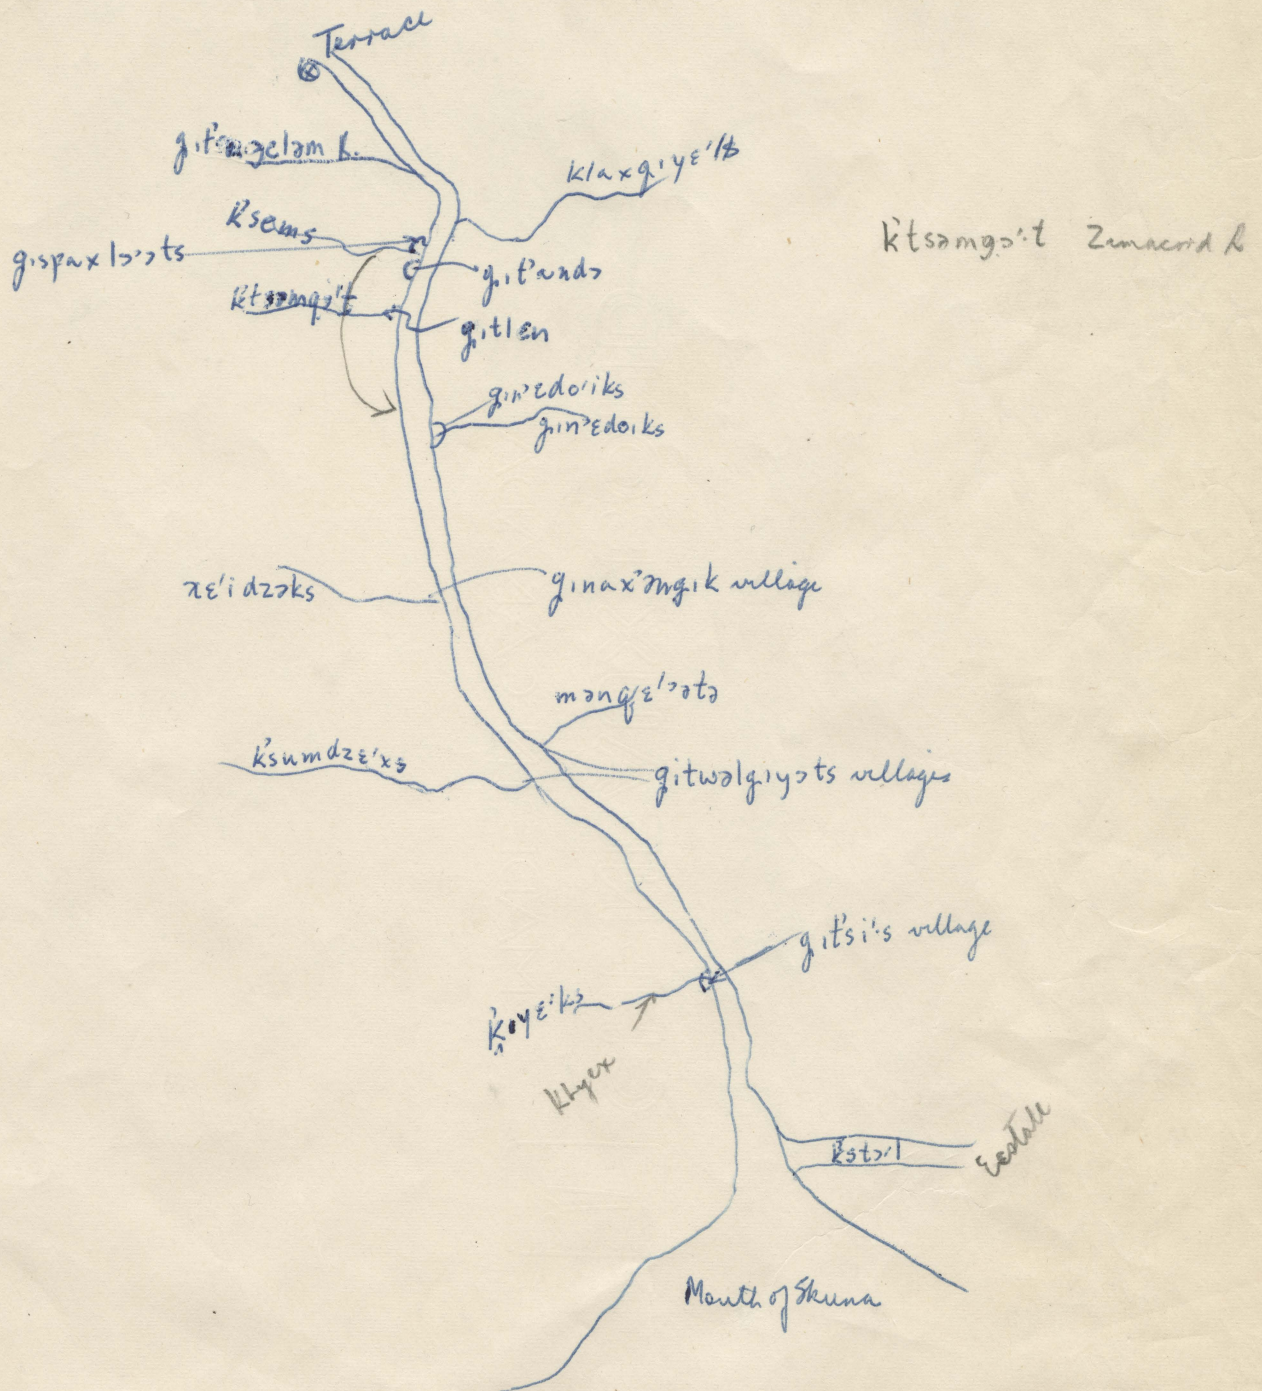 Terrace
g̣ıt'sạgeləm R.
klaxg̣ıyɛ'ls
k'sems
k'tsəmgɔ't Zimacord R
g̣ıspaxlɔ'ɔts
g̣ıt'andɔ
k'tsəmgɔ't
g̣ıtlɛn
g̣ın'ɛdo'iks
g̣ın'ɛdoıks
xɛ'idzəks
g̣ınax'əngık village
mənqɛ'ɔətə
k'sumdzɛ'xs
gitwəlgıyɔts villages
g̣ıt'si's village
k'ıyɛ'iks
Khyex
k'stɔ'l
Eestall
Mouth of Skuna